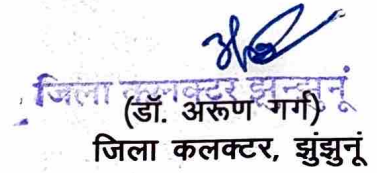 जिला कलक्टर झुन्झुनूं
(डॉ. अरूण गर्ग)
जिला कलक्टर, झुंझुनूं